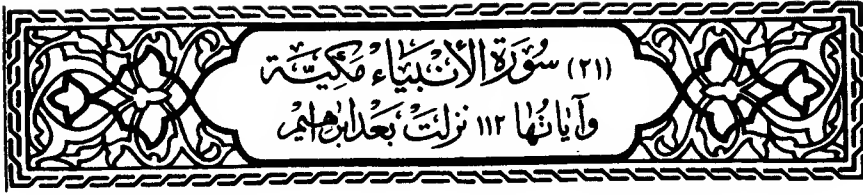 (٢١) سُورَة الأنْبيَاء مَكيَّة
وَآيَاتُهَا ١١٢ نزَلَتْ بَعْدَ إبْرَاهِيم